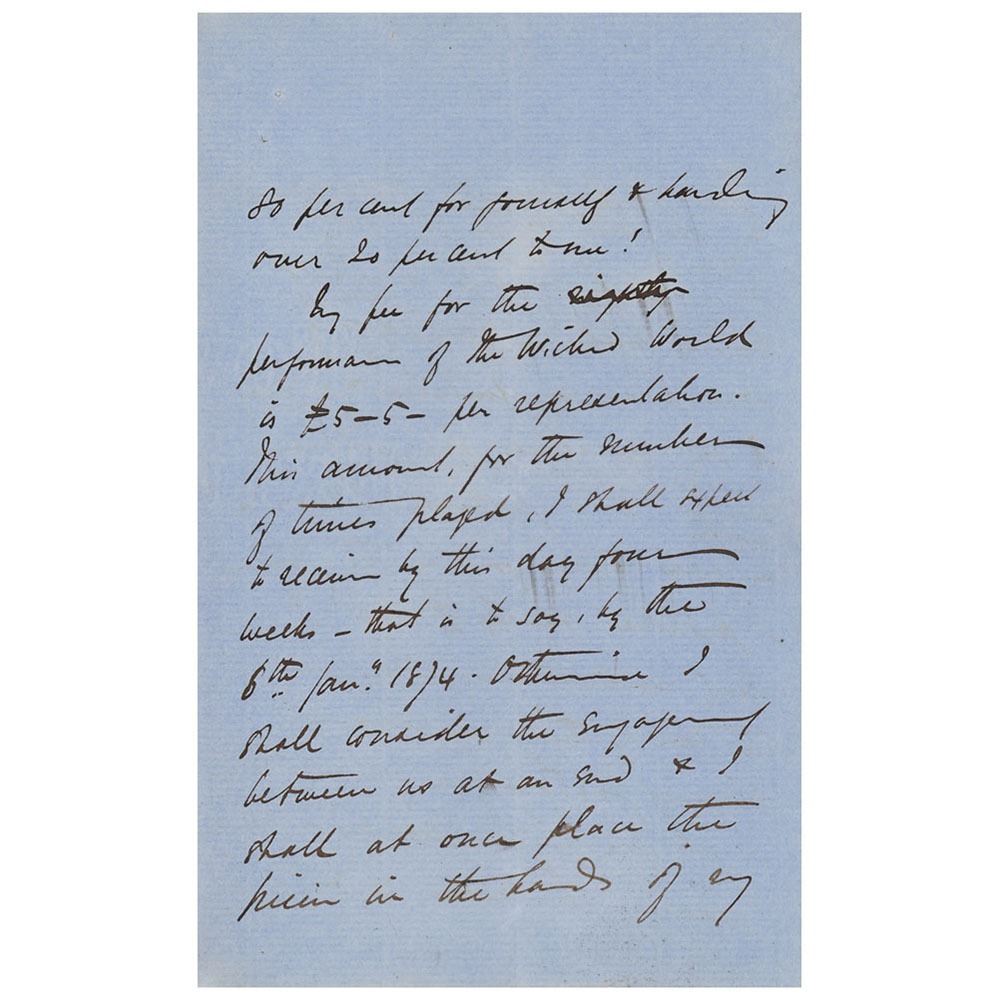 80 per cent for yourself & handing
over 20 per cent to me!
My fee for the nightly
performance of The Wicked World
is £5-5- per representation.
This amount, for the number
of times played, I shall expect
to receive by this day four
weeks - that is to say, by the
6th Jany. 1874. Otherwise I
shall consider the engagement
between us at an end & I
shall at once place the
piece in the hands of my